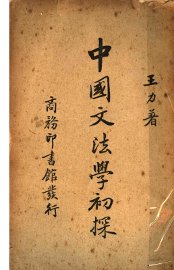 王力著
中國文法學初探
商務印書館發行